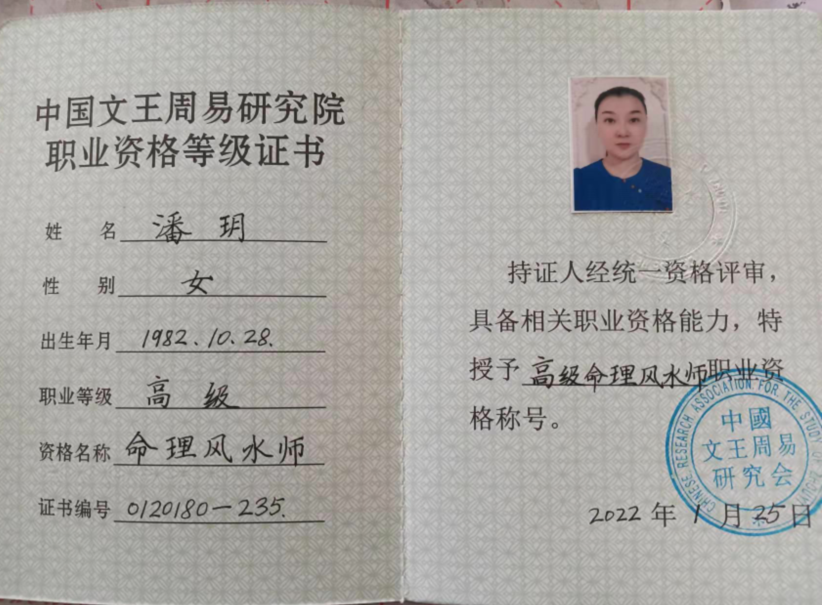 中国文王周易研究院
职业资格等级证书
姓 名 潘玥
性 别 女
出生年月 1982.10.28.
职业等级 高级
资格名称 命理风水师
证书编号 0120180-235.
持证人经统一资格评审，
具备相关职业资格能力，特
授予高级命理风水师职业资
格称号。
CHINESE RESEARCH ASSOCIATION FOR THE STUDY OF
中國
文王周易
研究会
2022年1月25日